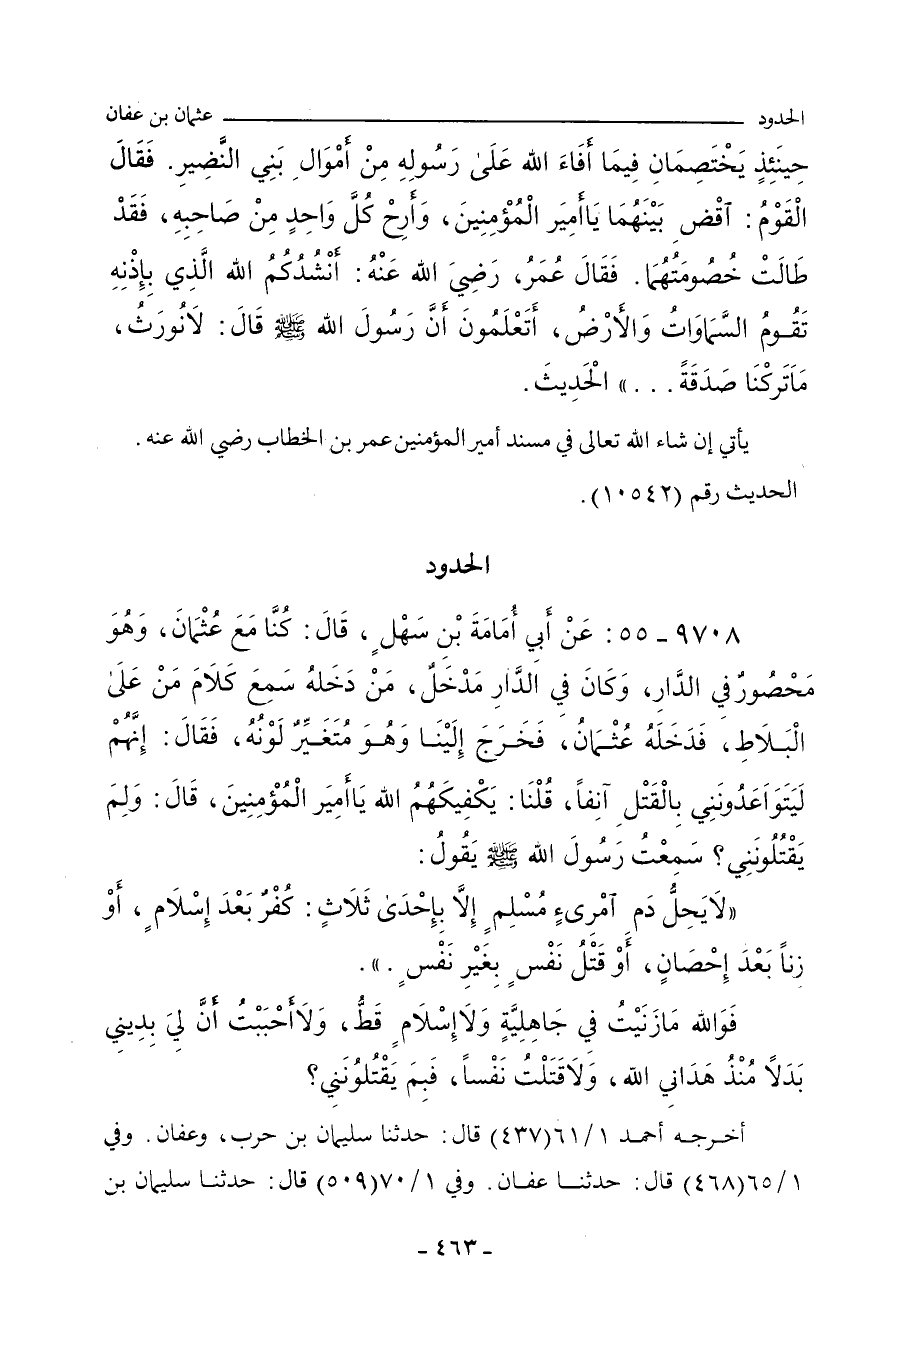 الحدود ــــــــــــ عثمان بن عفان
حِينَئِذٍ يَخْتَصِمَانِ فِيمَا أَفَاءَ الله عَلَىٰ رَسُولِهِ مِنْ أَمْوَالِ بَنِي النَّضِيرِ. فَقَالَ
الْقَوْمُ: آقْضِ بَيْنَهُمَا يَاأَمِيرَ الْمُؤْمِنِينَ، وَأَرِحْ كُلَّ وَاحِدٍ مِنْ صَاحِبِهِ، فَقَدْ
طَالَتْ خُصُومَتُهُمَا. فَقَالَ عُمَرُ، رَضِيَ الله عَنْهُ: أَنْشُدُكُمُ الله الَّذِي بِإِذْنِهِ
تَقُومُ السَّمَاوَاتُ وَالأَرْضُ، أَتَعْلَمُونَ أَنَّ رَسُولَ الله ﷺ قَالَ: لَانُورَثُ،
مَاتَرَكْنَا صَدَقَةٌ . . .» الْحَدِيثَ.
يأتي إن شاء الله تعالى في مسند أمير المؤمنين عمر بن الخطاب رضي الله عنه.
الحديث رقم (١٠٥٤٢).
الحدود
٩٧٠٨ ـ ٥٥: عَنْ أَبِي أُمَامَةَ بْنِ سَهْلٍ، قَالَ: كُنَّا مَعَ عُثْمَانَ، وَهُوَ
مَحْصُورٌ فِي الدَّارِ، وَكَانَ فِي الدَّارِ مَدْخَلٌ، مَنْ دَخَلَهُ سَمِعَ كَلَامَ مَنْ عَلَىٰ
الْبَلَاطِ، فَدَخَلَهُ عُثْمَانُ، فَخَرَجَ إِلَيْنَا وَهُوَ مُتَغَيِّرٌ لَوْنُهُ، فَقَالَ: إِنَّهُمْ
لَيَتَوَاعَدُونَنِي بِالْقَتْلِ آنِفاً، قُلْنَا: يَكْفِيكَهُمُ الله يَاأَمِيرَ الْمُؤْمِنِينَ، قَالَ: وَلِمَ
يَقْتُلُونَنِي؟ سَمِعْتُ رَسُولَ الله ﷺ يَقُولُ:
«لَايَحِلُّ دَمِ آمْرِىءٍ مُسْلِمٍ إِلَّا بِإِحْدَىٰ ثَلَاثٍ: كُفْرٌ بَعْدَ إِسْلَامٍ، أَوْ
زِناً بَعْدَ إِحْصَانٍ، أَوْ قَتْلُ نَفْسٍ بِغَيْرِ نَفْسٍ.».
فَوَالله مَازَنَيْتُ فِي جَاهِلِيَّةٍ وَلَاإِسْلَامٍ قَطُّ، وَلَاأَحْبَبْتُ أَنَّ لِيَ بِدِينِي
بَدَلًا مُنْذُ هَدَانِي الله، وَلَاقَتَلْتُ نَفْساً، فَبِمَ يَقْتُلُونَنِي؟
أخرجه أحمد ٦١/١(٤٣٧) قال: حدثنا سليمان بن حرب، وعفان. وفي
٦٥/١(٤٦٨) قال: حدثنا عفان. وفي ٧٠/١(٥٠٩) قال: حدثنا سليمان بن
ـ ٤٦٣ ـ